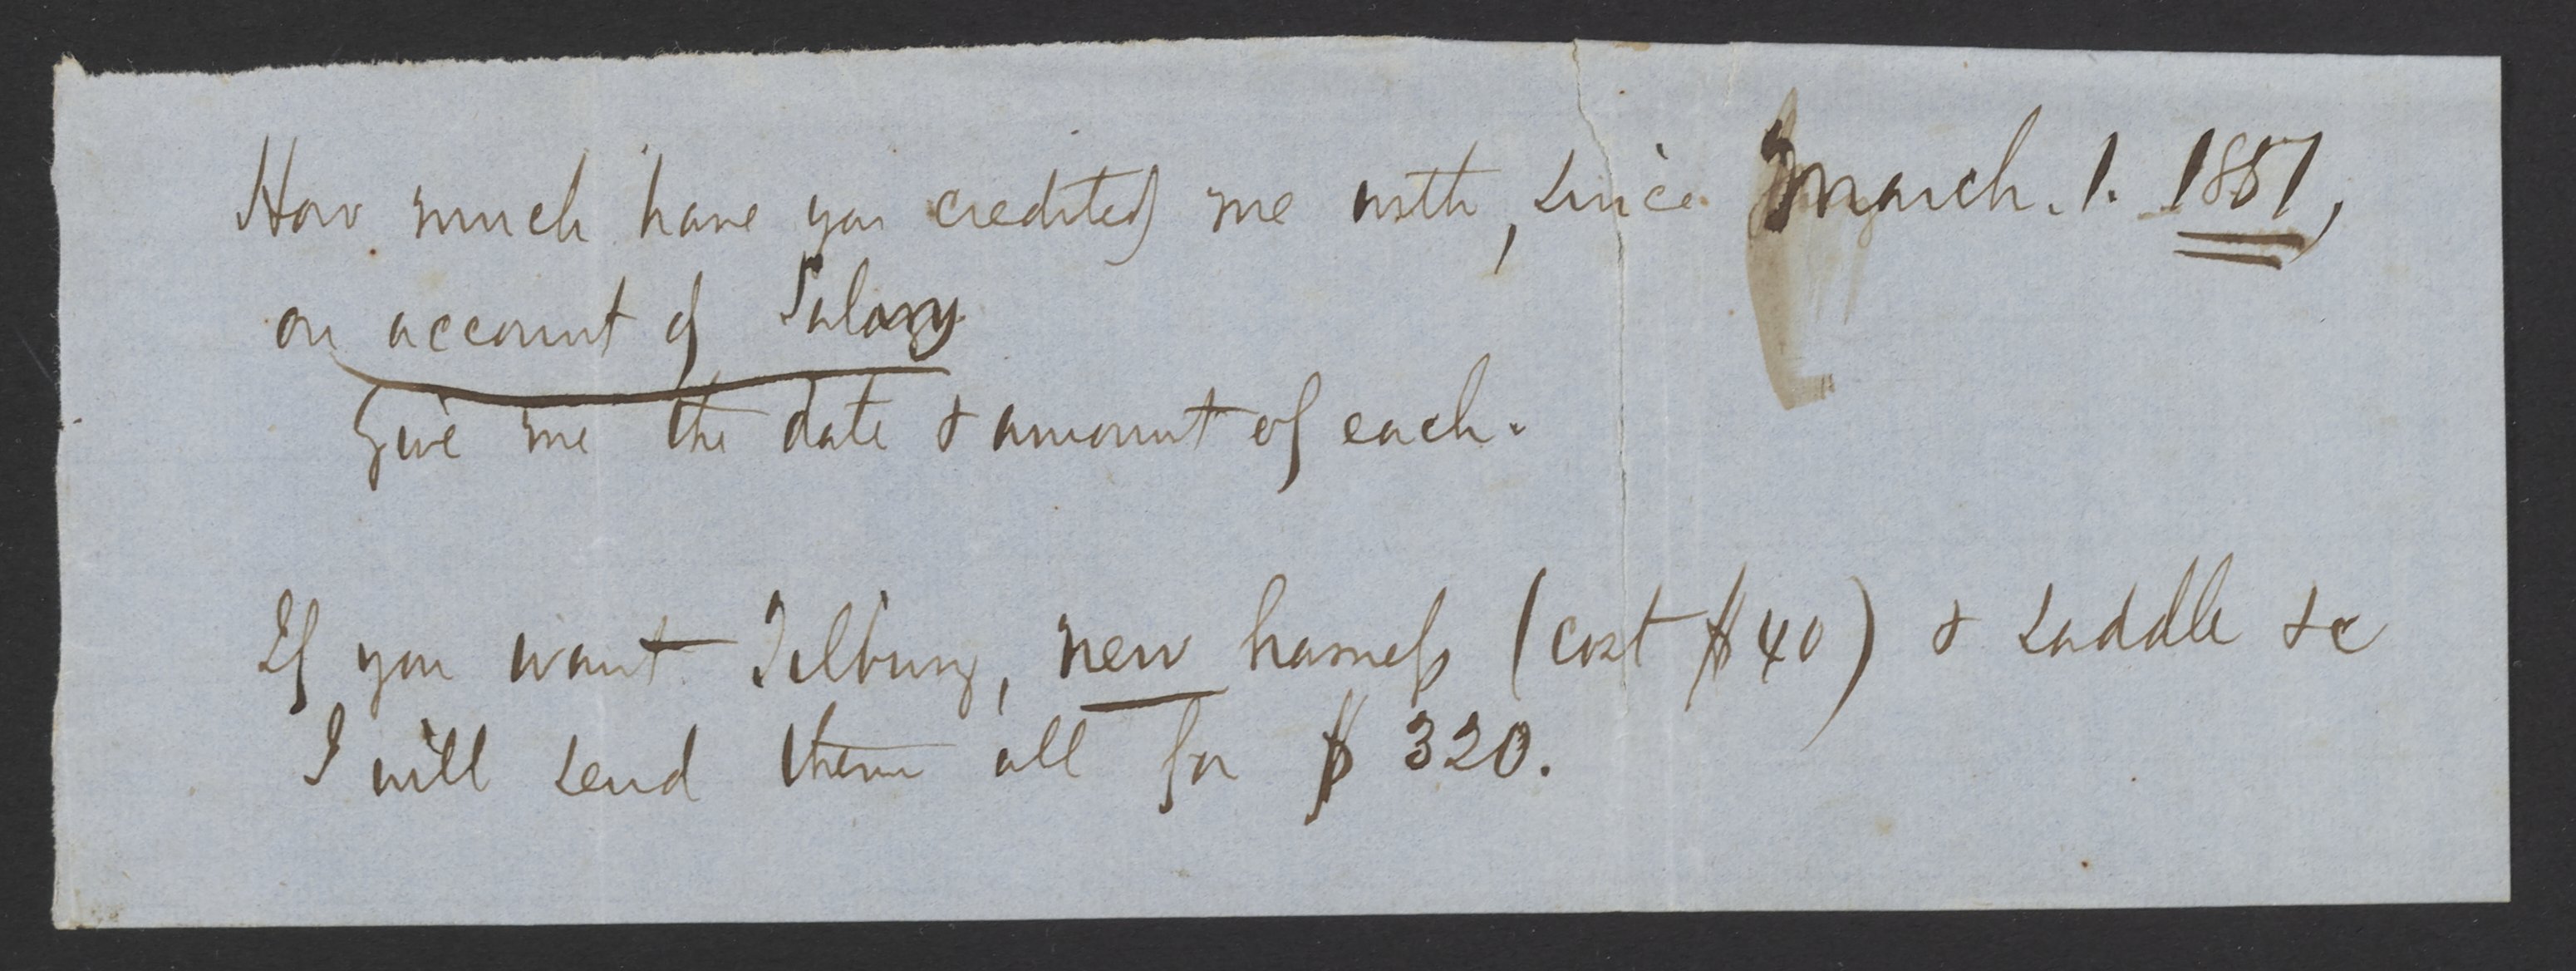 How much have you credited me with, since March. 1. 1857,
on account of Salary
Give me the date & amount of each.
If you want Tilbury, new harness (cost $40) & saddle &c
I will send them all for $320.